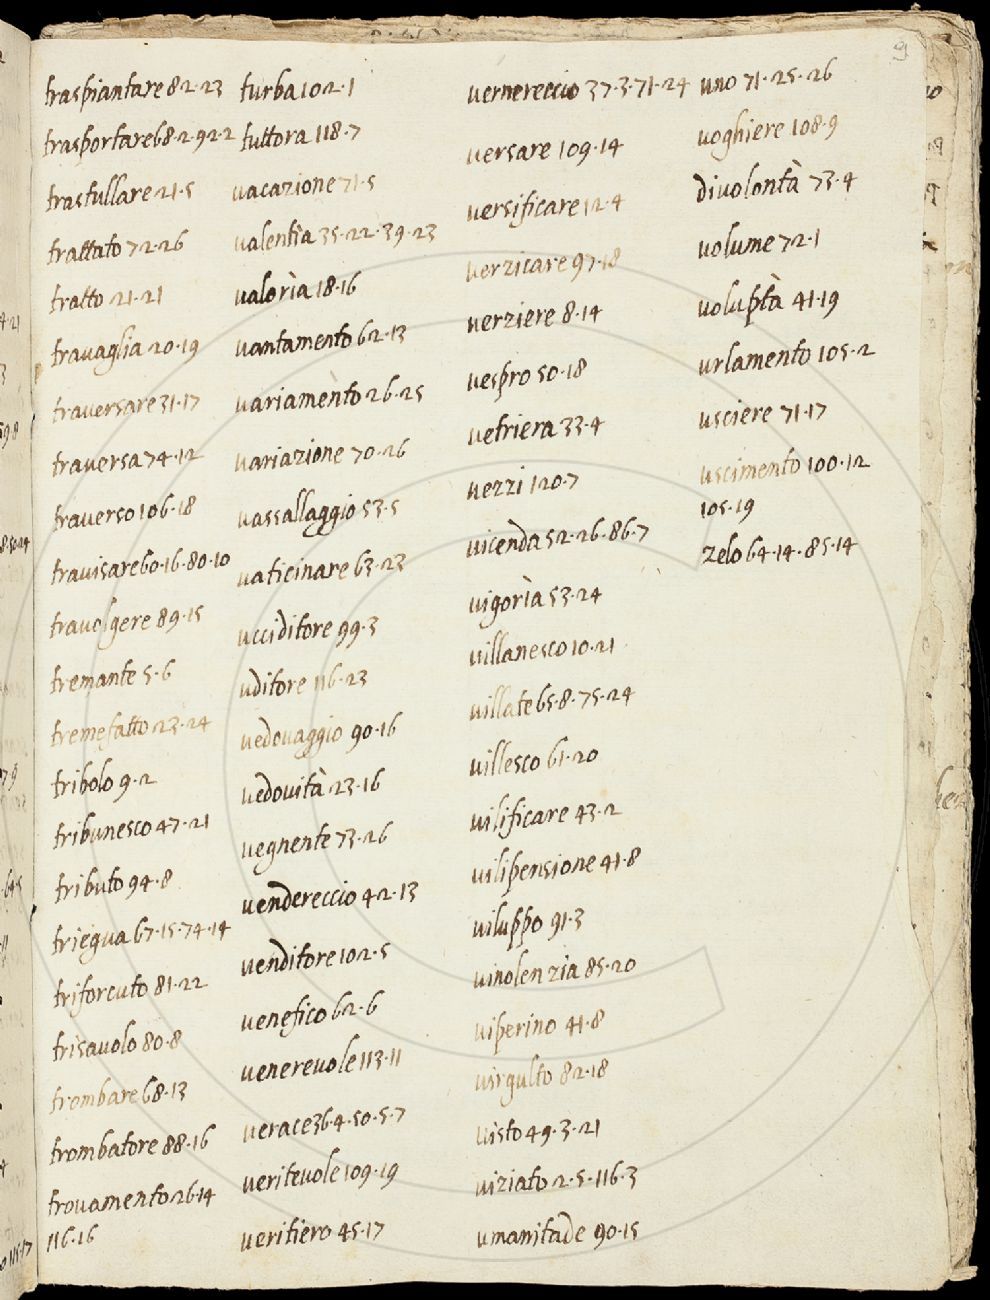 9
traspiantare 82·23
trasportare 68·2·92·2
trastullare 21·5
trattato 72·26
tratto 21·21
travaglia 20·19
traversare 31·17
traversa 74·12
traverso 106·18
travisare 60·16·80·10
travolgere 89·15
tremante 5·6
tremefatto 23·24
tribolo 9·2
tribunesco 47·21
tributo 94·8
triegua 67·15·74·14
triforcuto 81·22
trisavolo 80·8
trombare 68·13
trombatore 88·16
trovamento 26·14
116·16
turba 102·1
tuttora 118·7
vacazione 71·5
valentìa 35·22·39·23
valorìa 18·16
vantamento 62·13
variamento 26·25
variazione 70·26
vassallaggio 53·5
vaticinare 63·23
ucciditore 99·3
uditore 116·23
vedovaggio 90·16
vedovità 23·16
vegnente 73·26
vendereccio 42·13
venditore 102·5
venefico 62·6
venerevole 113·11
verace 36·4·50·5·7
veritevole 109·19
veritiero 45·17
vernereccio 37·3·71·24
versare 109·14
versificare 12·4
verzicare 97·18
verziere 8·14
vespro 50·18
vetriera 33·4
vezzi 120·7
vicenda 52·26·86·7
vigorìa 53·24
villanesco 10·21
villate 65·8·75·24
villesco 61·20
vilificare 43·2
vilipensione 41·8
viluppo 91·3
vinolenzia 85·20
viperino 41·8
virgulto 82·18
visto 49·3·21
viziato 2·5·116·3
umanitade 90·15
uno 71·25·26
voghiere 108·9
divolontà 73·4
volume 72·1
voluptà 41·19
urlamento 105·2
usciere 71·17
uscimento 100·12
105·19
zelo 64·14·85·14